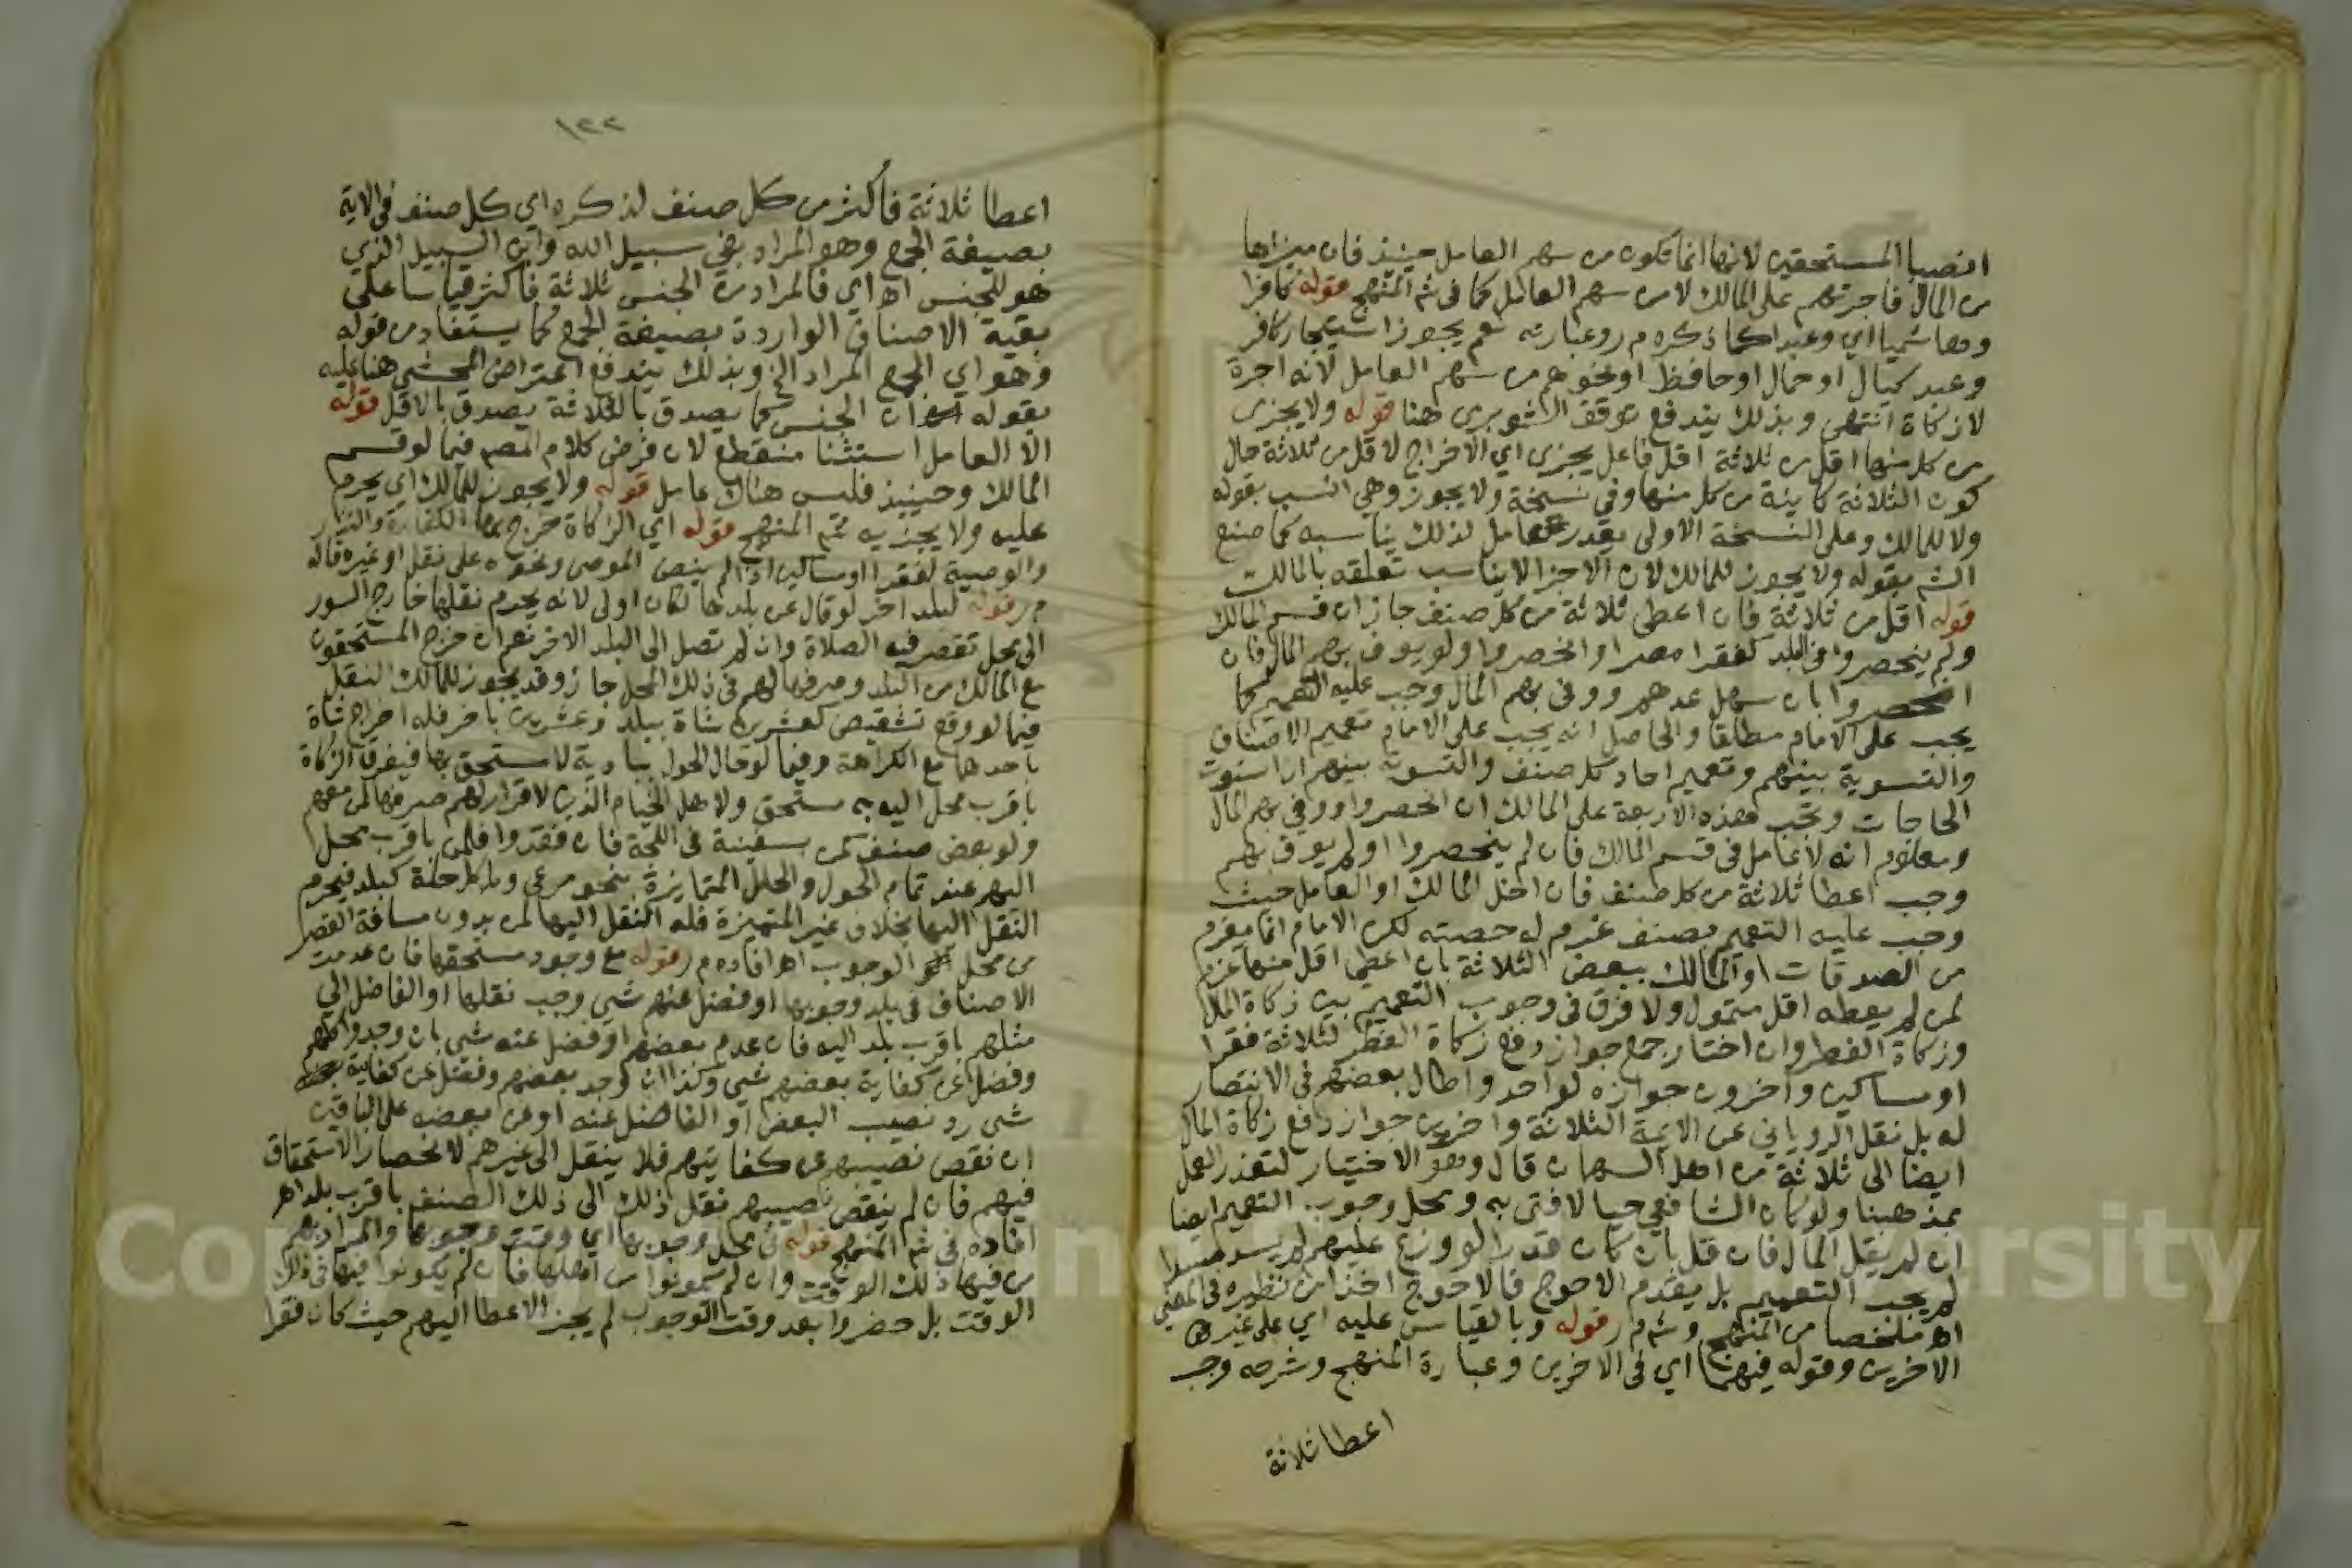 انصبا المستحقين لانها انما تكون من سهم العامل حينئذ فان ميزاها
من المال فاجرتهم على المالك لا من سهم العامل كما في شم المنهج قوله كافرا
وهاشميا اي وعبدا كما ذكره م ر وعبارته نعم يجوز استيجار كافر
وعبد كيال او حمال او حافظ او نحوهم من سهم العامل لانه اجرة
لا زكاة انتهى وبذلك يندفع توقف الشوبرى هنا قوله ولا يجزى
من كل منها اقل من ثلاثة اقل فاعل يجزى اي الاخراج لاقل من ثلاثة حال
كون الثلاثة كاينة من كل منها وفي نسخة ولا يجوز وهي انسب بقوله
ولا للمالك وعلى النسخة الاولى يقدر عامل لذلك يناسبه كما صنع
الش بقوله ولا يجوز للمالك لان الاجزا لا يناسب تعلقه بالمالك
قوله اقل من ثلاثة فان اعطى ثلاثة من كل صنف جاز ان قسم المالك
ولم ينحصروا في البلد كفقرا مصر او انحصروا ولو يوف بهم المال فان
انحصروا بان سهل عدهم ووفى بهم المال وجب عليه التعميم كما
يجب على الامام مطلقا والحاصل انه يجب على الامام تعميم الاصناف
والتسوية بينهم وتعميم احاد كل صنف والتسوية بينهم ان استوت
الحاجات وتجب هذه الاربعة على المالك ان انحصروا ووفي بهم المال
ومعلوم انه لا عامل في قسم المالك فان لم ينحصروا او لم يوف بهم
وجب اعطا ثلاثة من كل صنف فان اخل المالك او العامل حيث
وجب عليه التعميم بصنف غرم له حصته لكن الامام انما يغرم
من الصدقات او المالك ببعض الثلاثة بان اعطى اقل منها غرم
لمن لم يعطه اقل متمول ولا فرق في وجوب التعميم بين زكاة المال
وزكاة الفطر وان اختار جمع جواز دفع زكاة الفطر لثلاثة فقرا
او مساكين واخرون جوازه لواحد واطال بعضهم في الانتصار
له بل نقل الروياني عن الايمة الثلاثة واخرين جواز دفع زكاة المال
ايضا الى ثلاثة من اهل السهمان قال وهو الاختيار لتعذر العمل
بمذهبنا ولو كان الشافعي حيا لافتى به ومحل وجوب التعميم ايضا
ان لم يقل المال فان قل بان كان قدرا لو وزع عليهم لم يسد مسدا
لم يجب التعميم بل يقدم الاحوج فالاحوج اخذا من نظيره في الفي
اه ملخصا من المنهج وش م ر قوله وبالقياس عليه اي على غيرها
الاخرين وقوله فيهما اي في الاخرين وعبارة المنهج وشرحه وجب
اعطا ثلاثة
١٢٢
اعطا ثلاثة فاكثر من كل صنف لذكره اي كل صنف في الاية
بصيغة الجمع وهو المراد بفي سبيل الله وابن السبيل الذي
هو للجنس اه اي فالمراد من الجنس ثلاثة فاكثر قياسا على
بقية الاصناف الواردة بصيغة الجمع كما يستفاد من قوله
وهو اي الجمع المراد الخ وبذلك يندفع اعتراض المحشي هنا عليه
بقوله ان الجنس كما يصدق بالثلاثة يصدق بالاقل قوله
الا العامل استثنا منقطع لان فرض كلام المصم فيما لو قسم
المالك وحينيذ فليس هناك عامل قوله ولا يجوز للمالك اي يحرم
عليه ولا يجزيه شم المنهج قوله اي الزكاة خرج بها الكفارة والنذر
والوصية لفقرا او مساكين اذا لم ينص الموصى ونحوه على نقل او غيره قاله
م ر قوله لبلد اخر لو قال عن بلدها لكان اولى لانه يحرم نقلها خارج السور
الى محل تقصر فيه الصلاة وان لم تصل الى البلد الاخر نعم ان خرج المستحقون
مع المالك من البلد وصرفها لهم في ذلك المحل جاز وقد يجوز للمالك النقل
فيما لو وقع تشقيص كعشرين شاة ببلد وعشرين باخر فله اخراج شاة
باحدهما مع الكراهة وفيما لو حال الحول ببادية لا مستحق بها فيفرق الزكاة
باقرب محل اليه به مستحق ولاهل الخيام الذين لا قرار لهم صرفها لمن معهم
ولو بعض صنف كمن بسفينة في اللجة فان فقدوا فلمن باقرب محل
اليهم عند تمام الحول والحلل المتمايزة بنحو مرعى وما كل حلة كبلد فيحرم
النقل اليها بخلاف غير المتميزة فله النقل اليها لمن بدون مسافة القصر
من محل الوجوب اه افاده م ر قوله مع وجود مستحقها فان عدمت
الاصناف في بلد وجوبها او فضل عنهم شي وجب نقلها او الفاضل الى
مثلهم باقرب بلد اليه فان عدم بعضهم او فضل عنه شي بان وجدوا كلهم
وفضل عن كفاية بعضهم شي وكذا ان وجد بعضهم وفضل عن كفاية
شي رد نصيب البعض او الفاضل عنه او عن بعضه على الباقين
ان نقص نصيبهم عن كفايتهم فلا ينقل الى غيرهم لانحصار الاستحقاق
فيهم فان لم ينقص نصيبهم نقل ذلك الى ذلك الصنف باقرب بلد اه
افاده في شم المنهج قوله في محل وجوبها اي وقت وجوبها والمراد بهم
من فيها ذلك الوقت وان لم يكونوا من اهلها فان لم يكونوا فيها في ذلك
الوقت بل حضروا بعد وقت الوجوب لم يجز الاعطا اليهم حيث كان فقرا